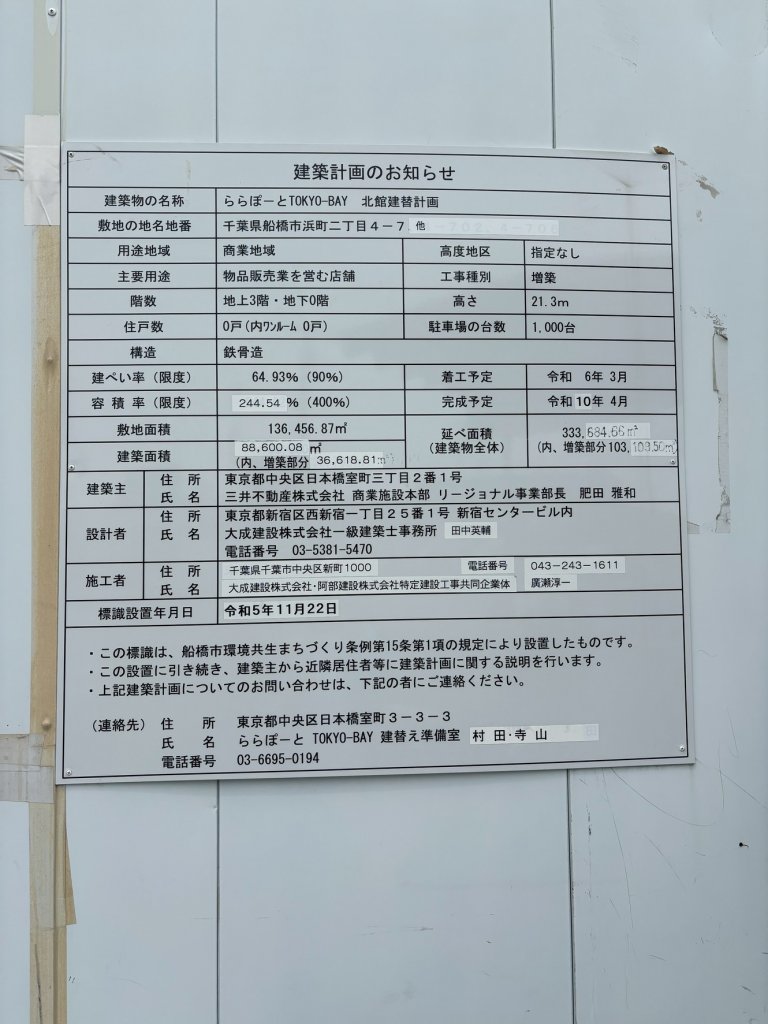 建築計画のお知らせ
建築物の名称 ららぽーとTOKYO-BAY 北館建替計画
敷地の地名地番 千葉県船橋市浜町二丁目4-7 他
用途地域 商業地域 高度地区 指定なし
主要用途 物品販売業を営む店舗 工事種別 増築
階数 地上3階・地下0階 高さ 21.3m
住戸数 0戸(内ワンルーム 0戸) 駐車場の台数 1,000台
構造 鉄骨造
建ぺい率(限度) 64.93%(90%) 着工予定 令和 6年 3月
容積率(限度) 244.54%(400%) 完成予定 令和10年 4月
敷地面積 136,456.87㎡ 延べ面積(建築物全体) 333,684.66㎡
建築面積 88,600.08㎡ (内、増築部分 36,618.81㎡) (内、増築部分103,108.50㎡)
建築主 住所 東京都中央区日本橋室町三丁目2番1号
氏名 三井不動産株式会社 商業施設本部 リージョナル事業部長 肥田 雅和
設計者 住所 東京都新宿区西新宿一丁目25番1号 新宿センタービル内
氏名 大成建設株式会社一級建築士事務所 田中英輔
電話番号 03-5381-5470
施工者 住所 千葉県千葉市中央区新町1000 電話番号 043-243-1611
氏名 大成建設株式会社・阿部建設株式会社特定建設工事共同企業体 廣瀬淳一
標識設置年月日 令和5年11月22日
・この標識は、船橋市環境共生まちづくり条例第15条第1項の規定により設置したものです。
・この設置に引き続き、建築主から近隣居住者等に建築計画に関する説明を行います。
・上記建築計画についてのお問い合わせは、下記の者にご連絡ください。
(連絡先) 住所 東京都中央区日本橋室町3-3-3
氏名 ららぽーと TOKYO-BAY 建替え準備室 村田・寺山
電話番号 03-6695-0194